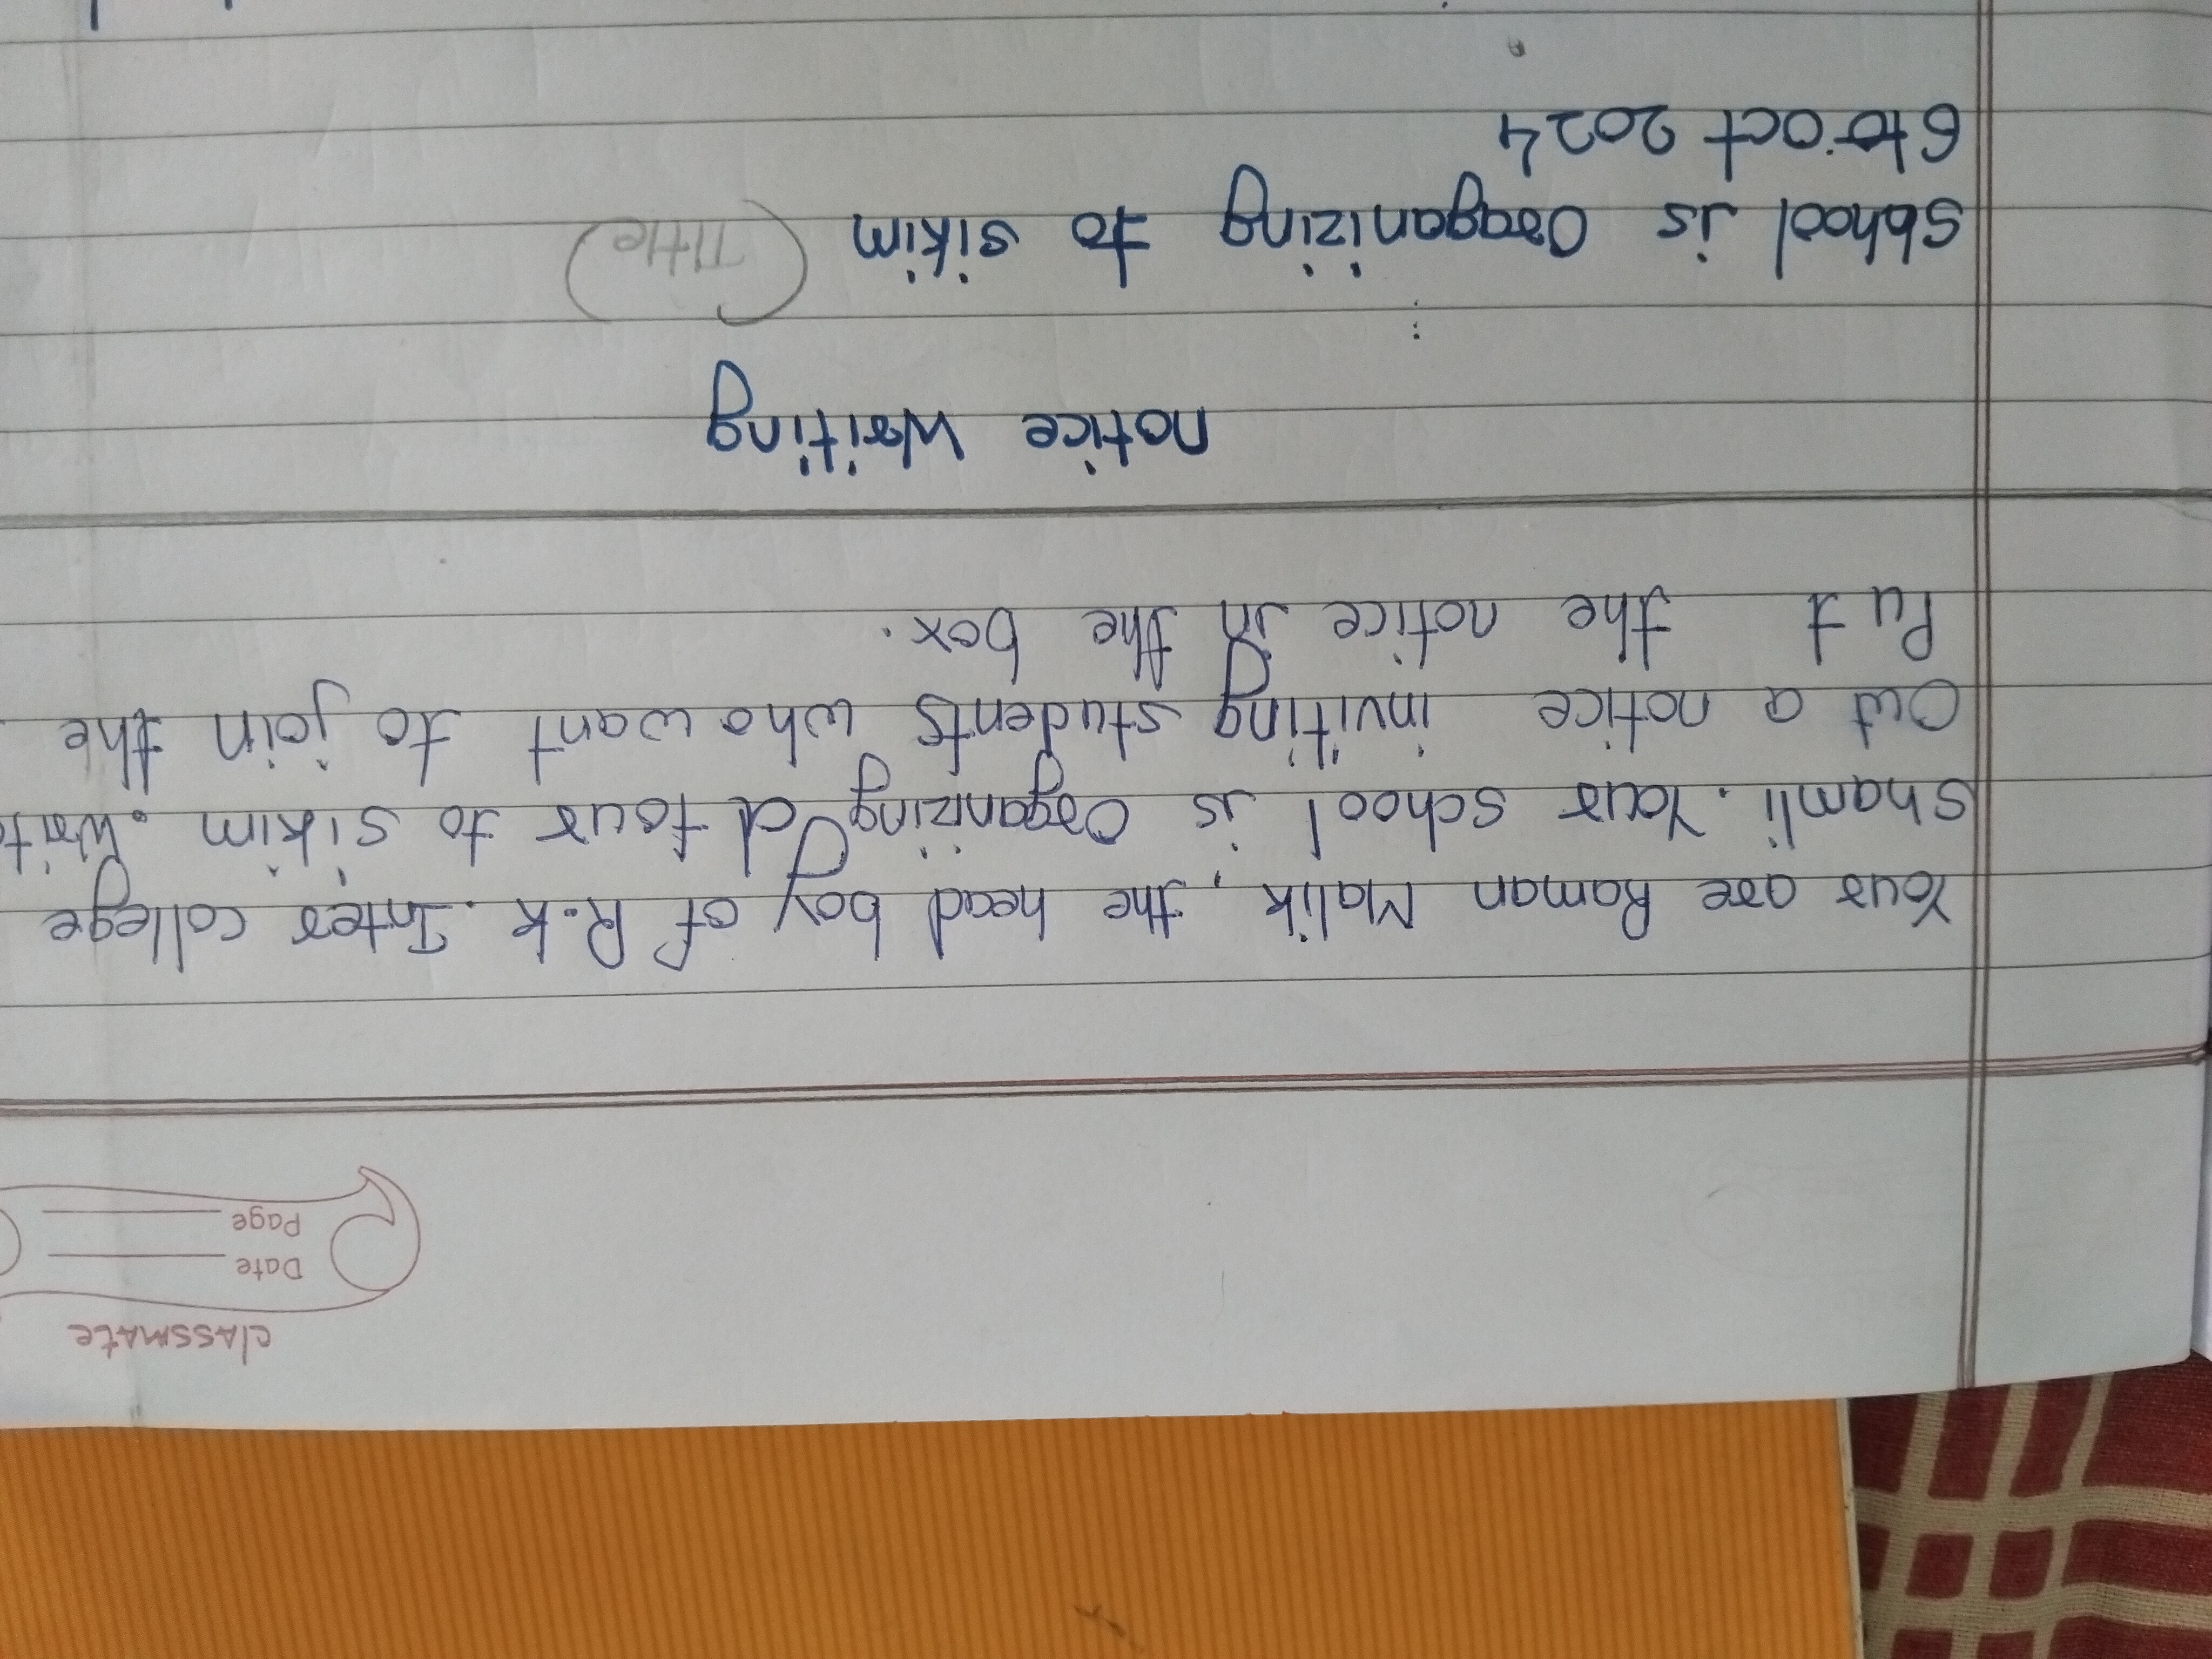 classmate
Date
Page
Your are Raman Malik, the head boy of R.k. Inter college
Shamli. Your school is Organizing d tour to sikim. Writ
Out a notice inviting students who want to join the
Put the notice in the box.
notice writing
Sbhool is Oraganizing to sikim (Title)
6 to oct 2024